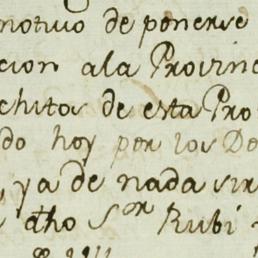 motivo de ponerse
cion ala Provin
chitos de esta Pro
do hoy por los De
, ya de nada sir
dho Sor Rubi